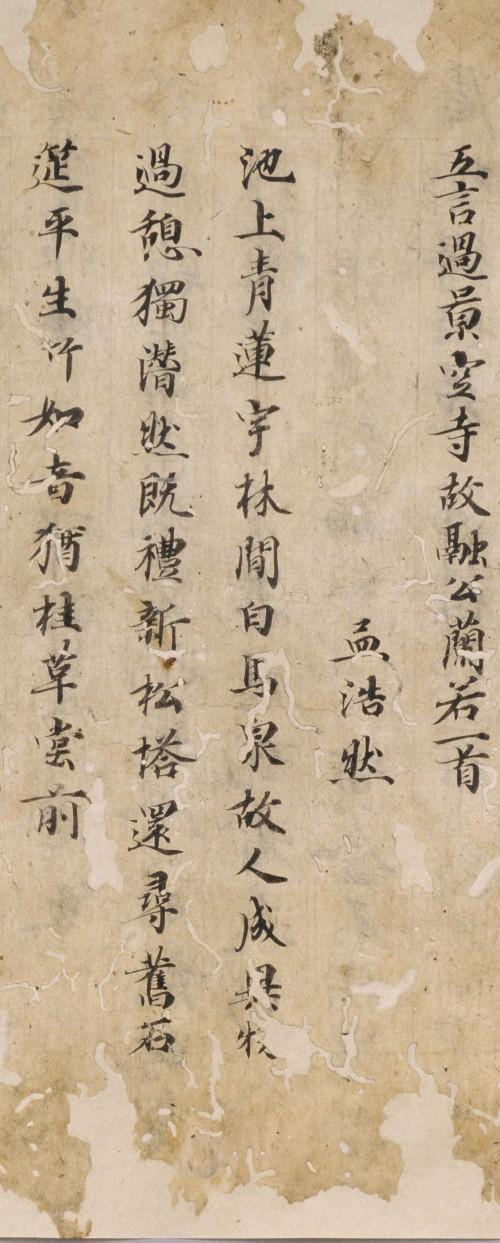 五言過景空寺故融公蘭若一首
孟浩然
池上青蓮宇林間白馬泉故人成異物
過憩獨潸然既禮新松塔還尋舊石
筵平生竹如意猶桂草堂前